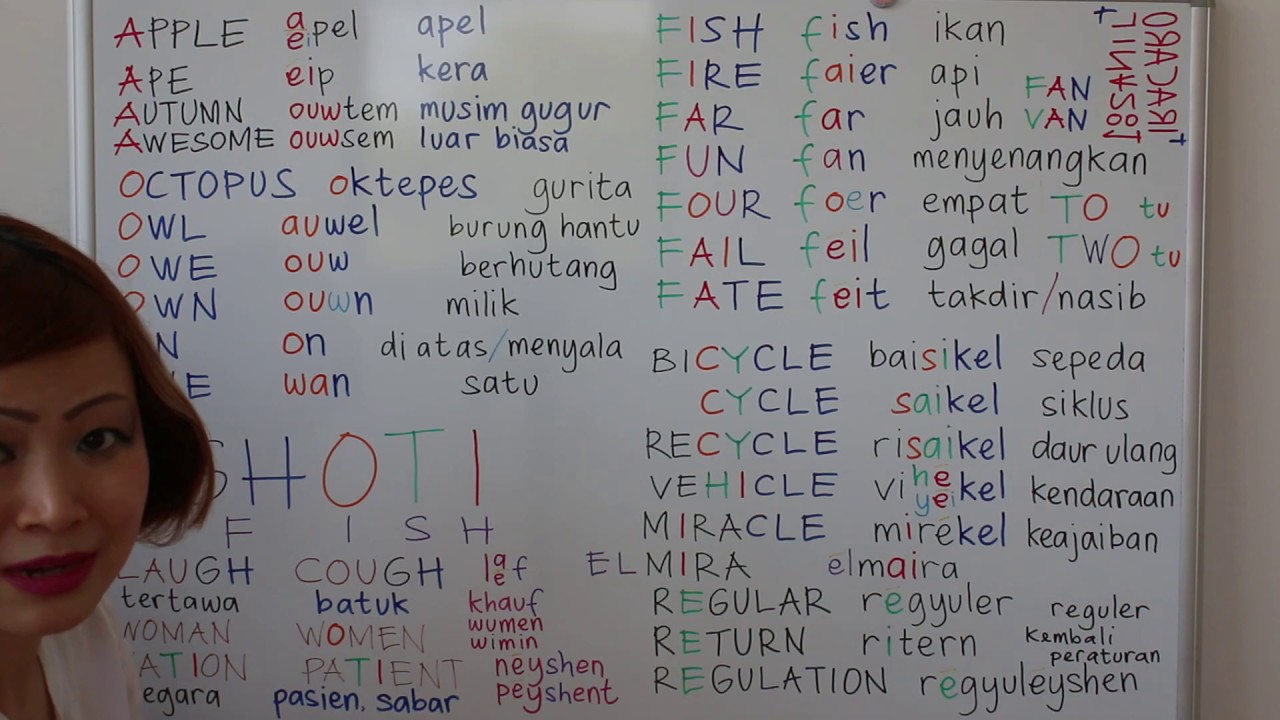 APPLE aeipel apel
APE eip kera
AUTUMN ouwtem musim gugur
AWESOME ouwsem luar biasa
OCTOPUS oktepes gurita
OWL auwel burung hantu
OWE ouw berhutang
OWN ouwn milik
N on di atas/menyala
E wan satu
HOTI
F I S H
LAUGH COUGH laef
tertawa batuk khauf
WOMAN WOMEN wumen
wimin
ATION PATIENT neyshen
egara pasien, sabar peyshent
FISH fish ikan
FIRE faier api FAN
FAR far jauh VAN
FUN fan menyenangkan
FOUR foer empat TO tu
FAIL feil gagal TWO tu
FATE feit takdir/nasib
BICYCLE baisikel sepeda
CYCLE saikel siklus
RECYCLE risaikel daur ulang
VEHICLE viheyeikel kendaraan
MIRACLE mirekel keajaiban
ELMIRA elmaira
REGULAR regyuler reguler
RETURN ritern kembali
peraturan
REGULATION regyuleyshen